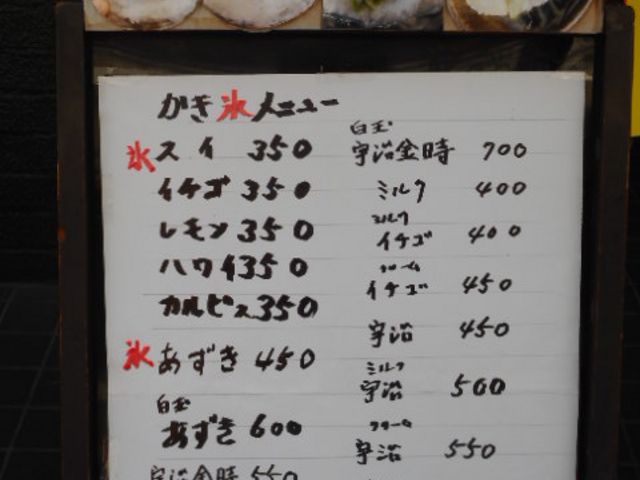 かき氷メニュー
氷スイ 350
イチゴ 350
レモン 350
ハワイ 350
カルピス 350
氷あずき 450
白玉
あずき 600
宇治金時 550
白玉
宇治金時 700
ミルク 400
ミルク
イチゴ 400
クリーム
イチゴ 450
宇治 450
ミルク
宇治 500
クリーム
宇治 550